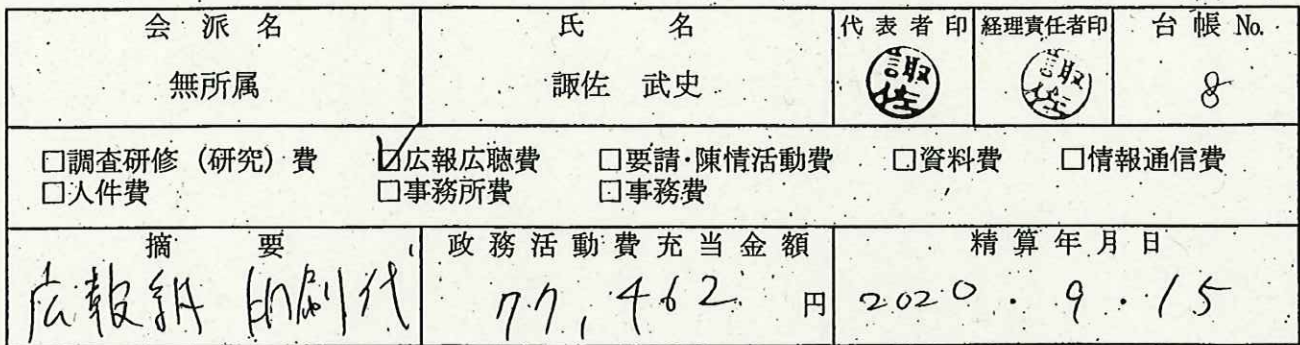 会派名 氏名 代表者印 経理責任者印 台帳No.
無所属 諏佐 武史 諏佐 諏佐 8
□調査研修（研究）費 ☑広報広聴費 □要請・陳情活動費 □資料費 □情報通信費
□人件費 □事務所費 □事務費
摘要 政務活動費充当金額 精算年月日
広報紙 印刷代 77,462 円 2020.9.15